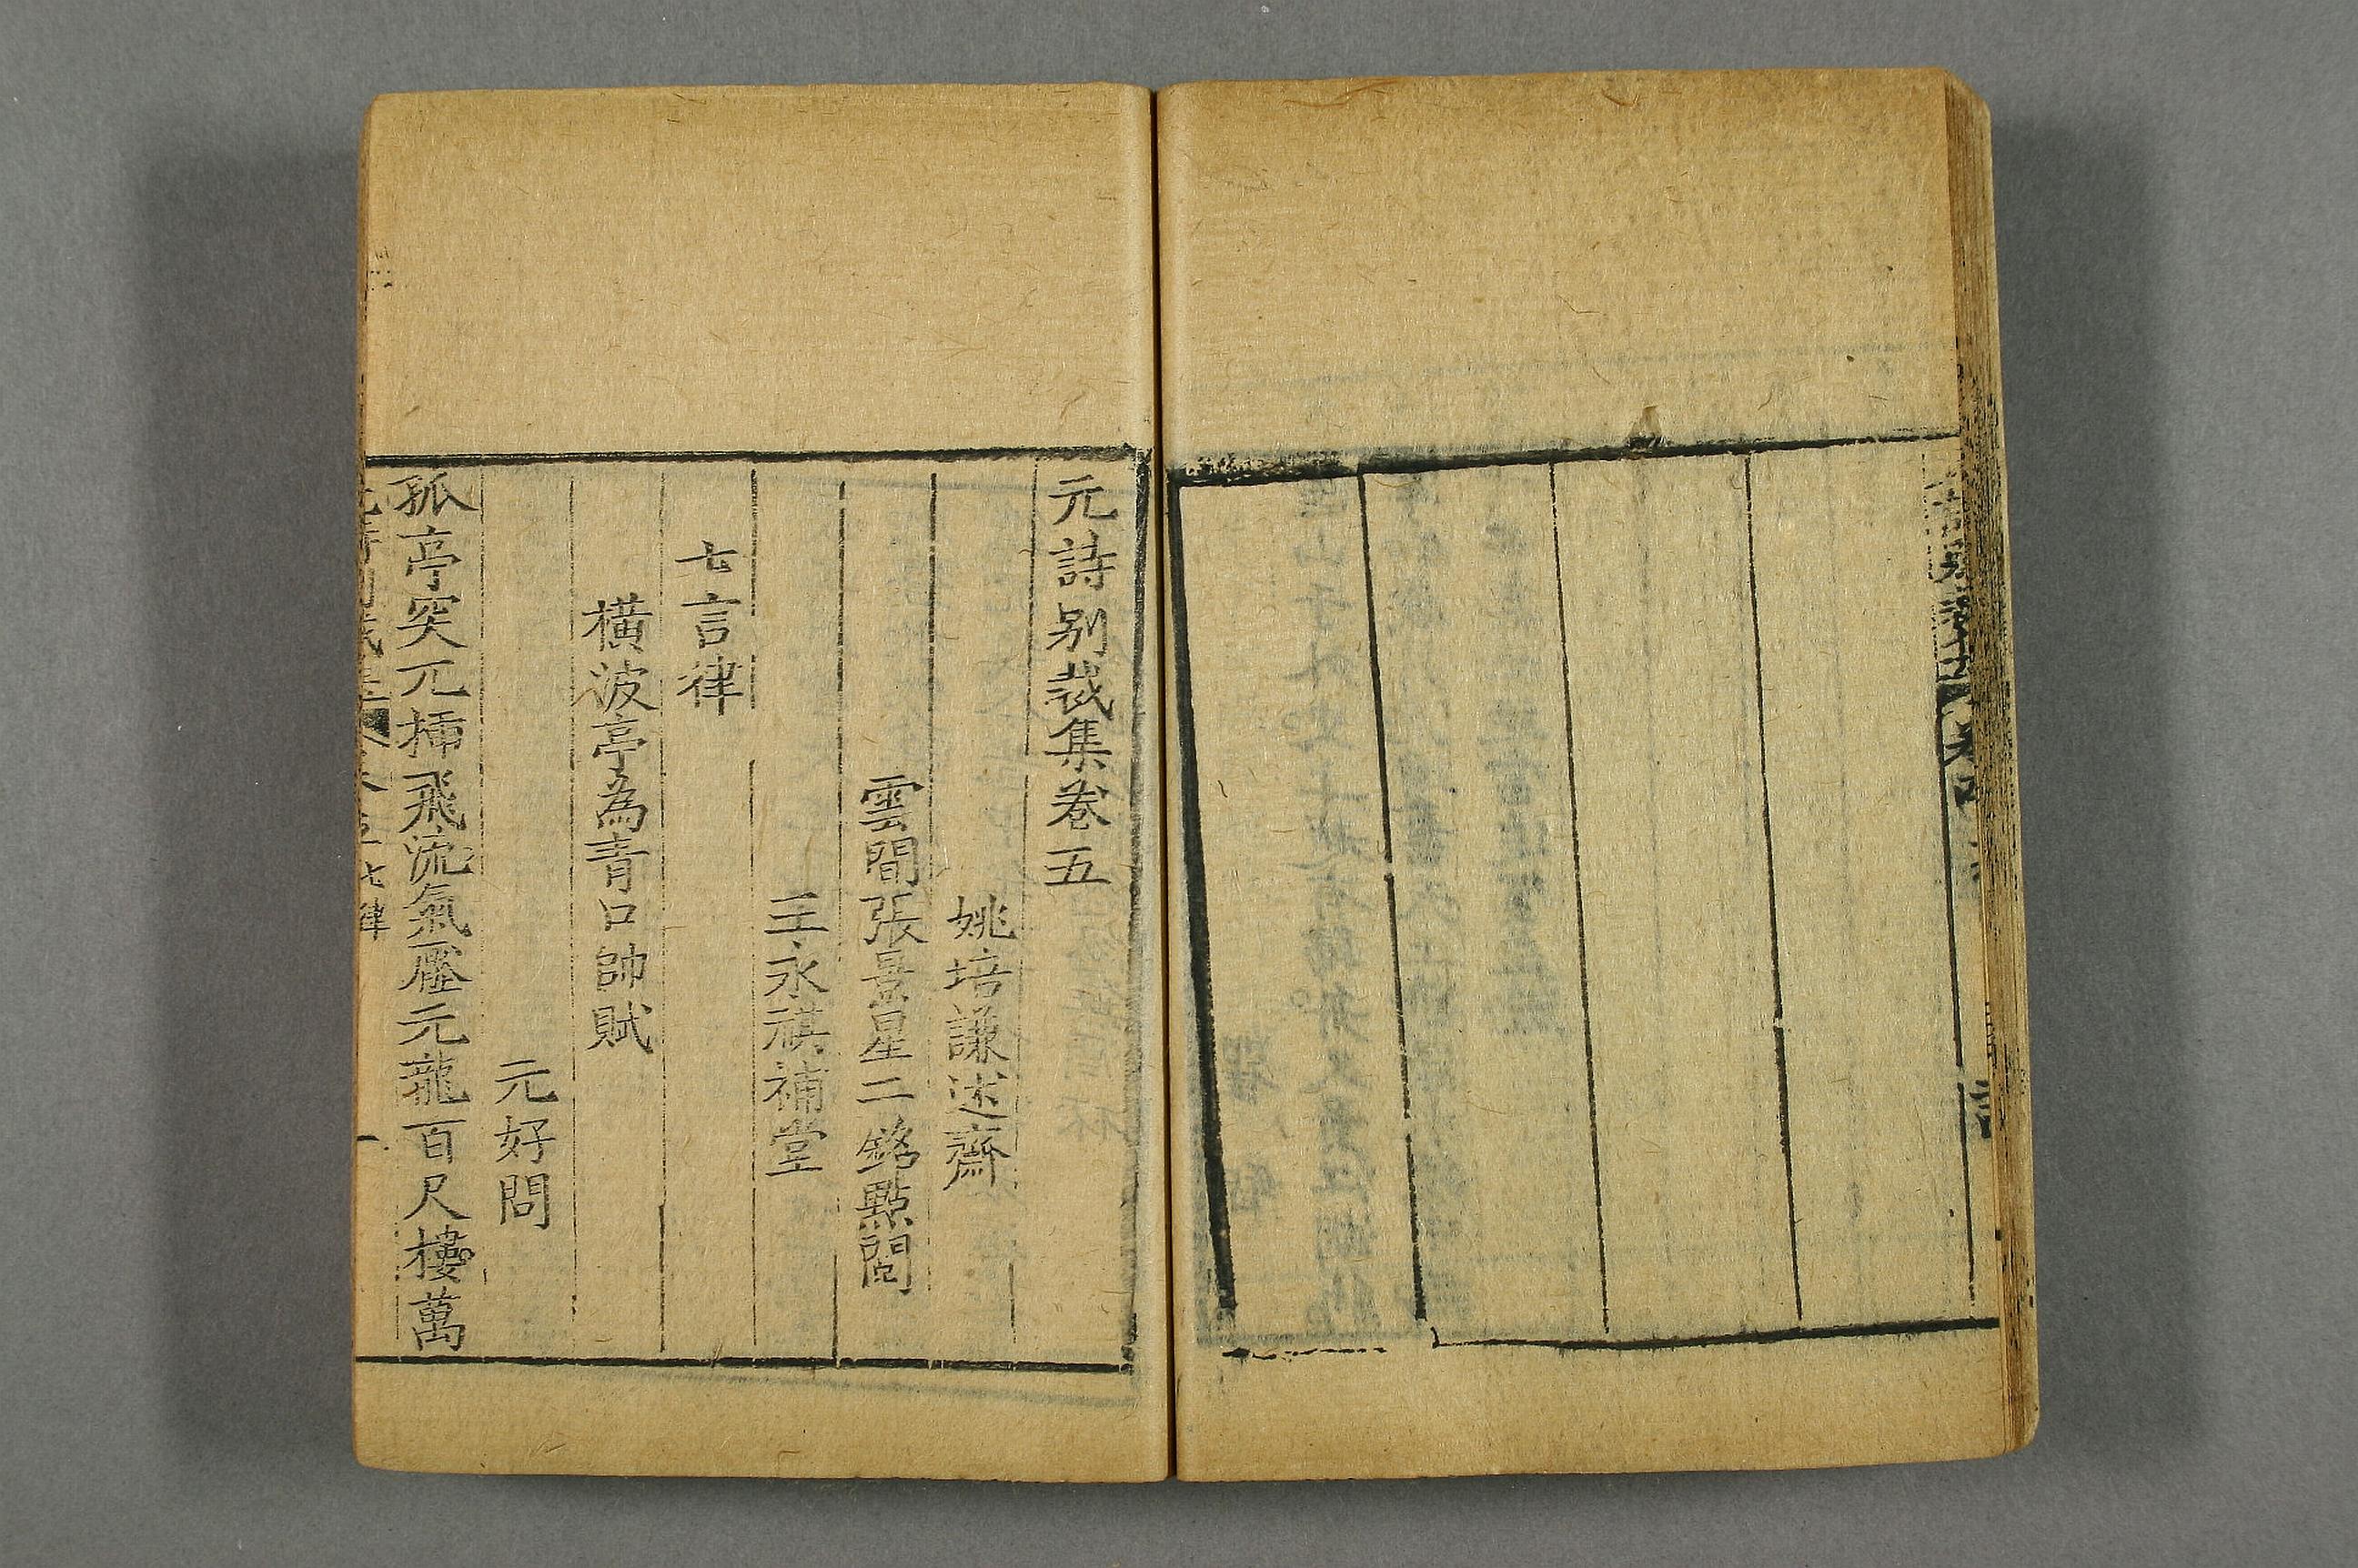 元詩别裁集卷五
姚培謙述齋
雲間張景星二銘點閱
王永祺補堂
七言律
橫波亭為青口帥賦
元好問
孤亭突兀揷飛流氣壓元龍百尺樓萬
七律
一